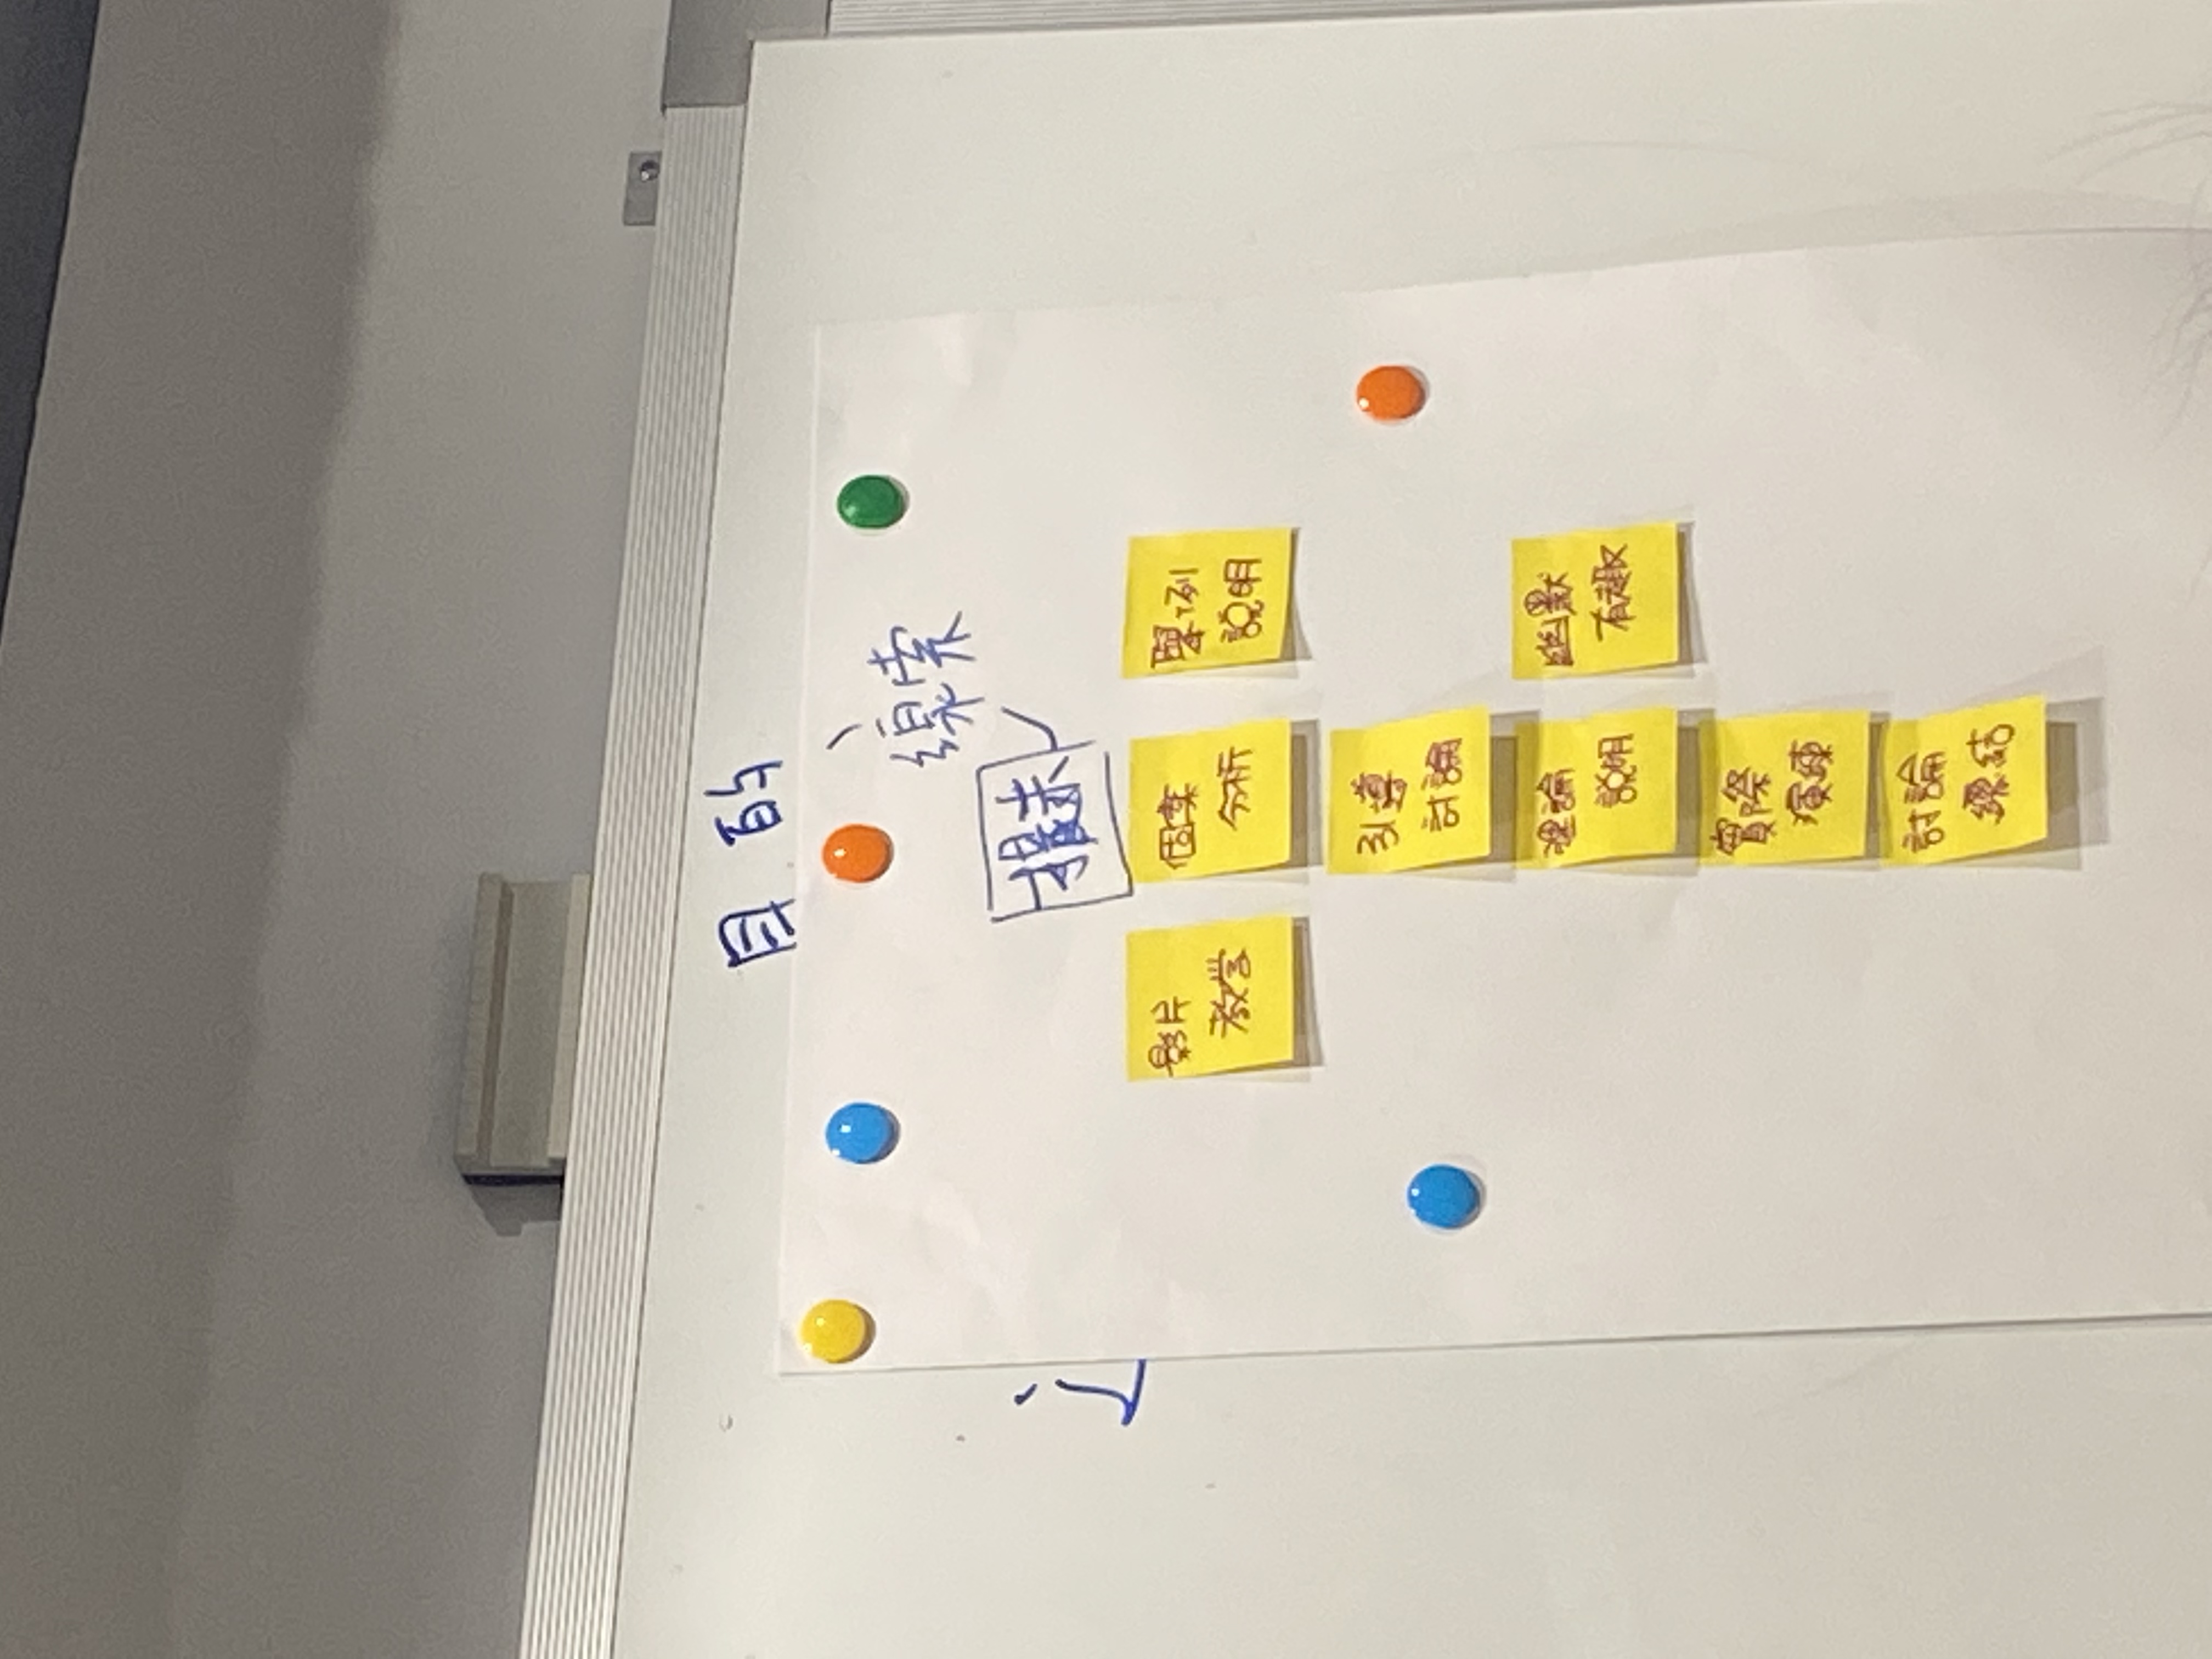 目的
線索
影片
教学
個案
分析
舉例
說明
引導
討論
理論
說明
幽默
有趣
實際
演練
討論
總結